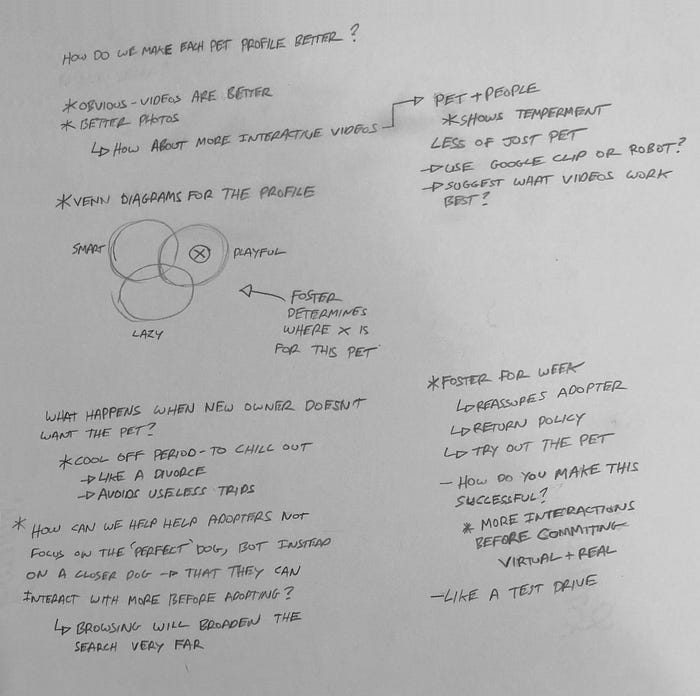 HOW DO WE MAKE EACH PET PROFILE BETTER?
* OBVIOUS - VIDEOS ARE BETTER
* BETTER PHOTOS
↳ HOW ABOUT MORE INTERACTIVE VIDEOS
→ PET + PEOPLE
* SHOWS TEMPERMENT
LESS OF JUST PET
→ USE GOOGLE CLIP OR ROBOT?
→ SUGGEST WHAT VIDEOS WORK
BEST?
* VENN DIAGRAMS FOR THE PROFILE
SMART
X
PLAYFUL
LAZY
FOSTER
DETERMINES
WHERE X IS
FOR THIS PET
WHAT HAPPENS WHEN NEW OWNER DOESN'T
WANT THE PET?
* COOL OFF PERIOD - TO CHILL OUT
→ LIKE A DIVORCE
→ AVOIDS USELESS TRIPS
* HOW CAN WE HELP HELP ADOPTERS NOT
FOCUS ON THE 'PERFECT' DOG, BUT INSTEAD
ON A CLOSER DOG → THAT THEY CAN
INTERACT WITH MORE BEFORE ADOPTING?
↳ BROWSING WILL BROADEN THE
SEARCH VERY FAR
* FOSTER FOR WEEK
↳ REASSURES ADOPTER
↳ RETURN POLICY
↳ TRY OUT THE PET
- HOW DO YOU MAKE THIS
SUCCESSFUL?
* MORE INTERACTIONS
BEFORE COMMITING
VIRTUAL + REAL
- LIKE A TEST DRIVE